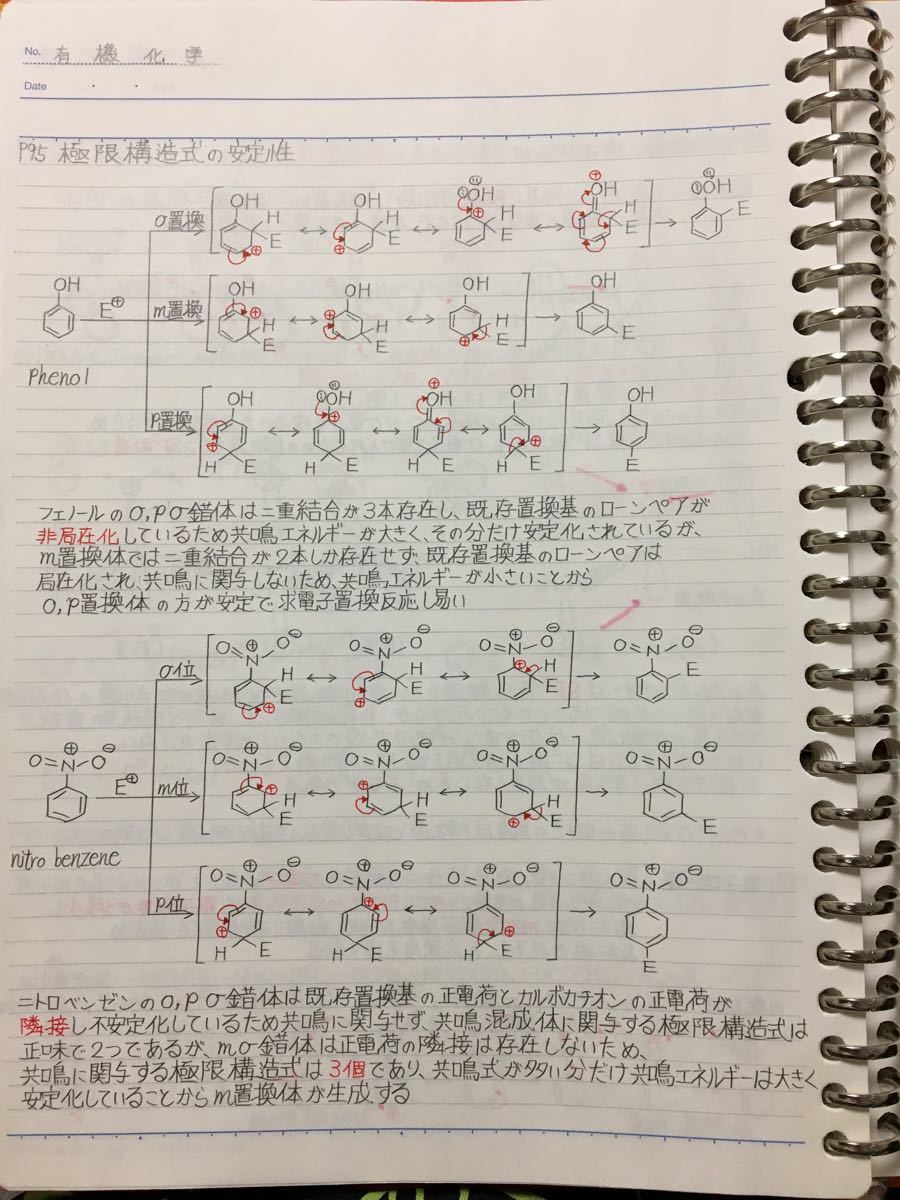 No. 有 機 化 学
Date ・ ・
P95 極限構造式の安定性
o置換
OH H E ⊕
OH H E ⊕
OH H E ⊕
⊕ OH H E
OH E
OH
E⊕
m置換
OH ⊕ H E
OH ⊕ H E
OH ⊕ H E
OH E
Phenol
p置換
OH ⊕ H E
OH ⊕ H E
⊕ OH H E
OH ⊕ H E
OH E
フェノールのo,pσ錯体は二重結合が3本存在し、既存置換基のローンペアが
非局在化しているため共鳴エネルギーが大きく、その分だけ安定化されているが、
m置換体では二重結合が2本しか存在せず、既存置換基のローンペアは
局在化され、共鳴に関与しないため、共鳴エネルギーが小さいことから
o,p置換体の方が安定で求電子置換反応し易い
o位
O=N⊕-O⊖ H E ⊕
O=N⊕-O⊖ H E ⊕
O=N⊕-O⊖ H E ⊕
O=N⊕-O⊖ E
O=N⊕-O⊖
E⊕
m位
O=N⊕-O⊖ ⊕ H E
O=N⊕-O⊖ ⊕ H E
O=N⊕-O⊖ ⊕ H E
O=N⊕-O⊖ E
nitro benzene
p位
O=N⊕-O⊖ ⊕ H E
O=N⊕-O⊖ ⊕ H E
O=N⊕-O⊖ ⊕ H E
O=N⊕-O⊖ E
ニトロベンゼンのo,p σ錯体は既存置換基の正電荷とカルボカチオンの正電荷が
隣接し不安定化しているため共鳴に関与せず、共鳴混成体に関与する極限構造式は
正味で2つであるが、mσ錯体は正電荷の隣接は存在しないため、
共鳴に関与する極限構造式は3個であり、共鳴式が多い分だけ共鳴エネルギーは大きく
安定化していることからm置換体が生成する